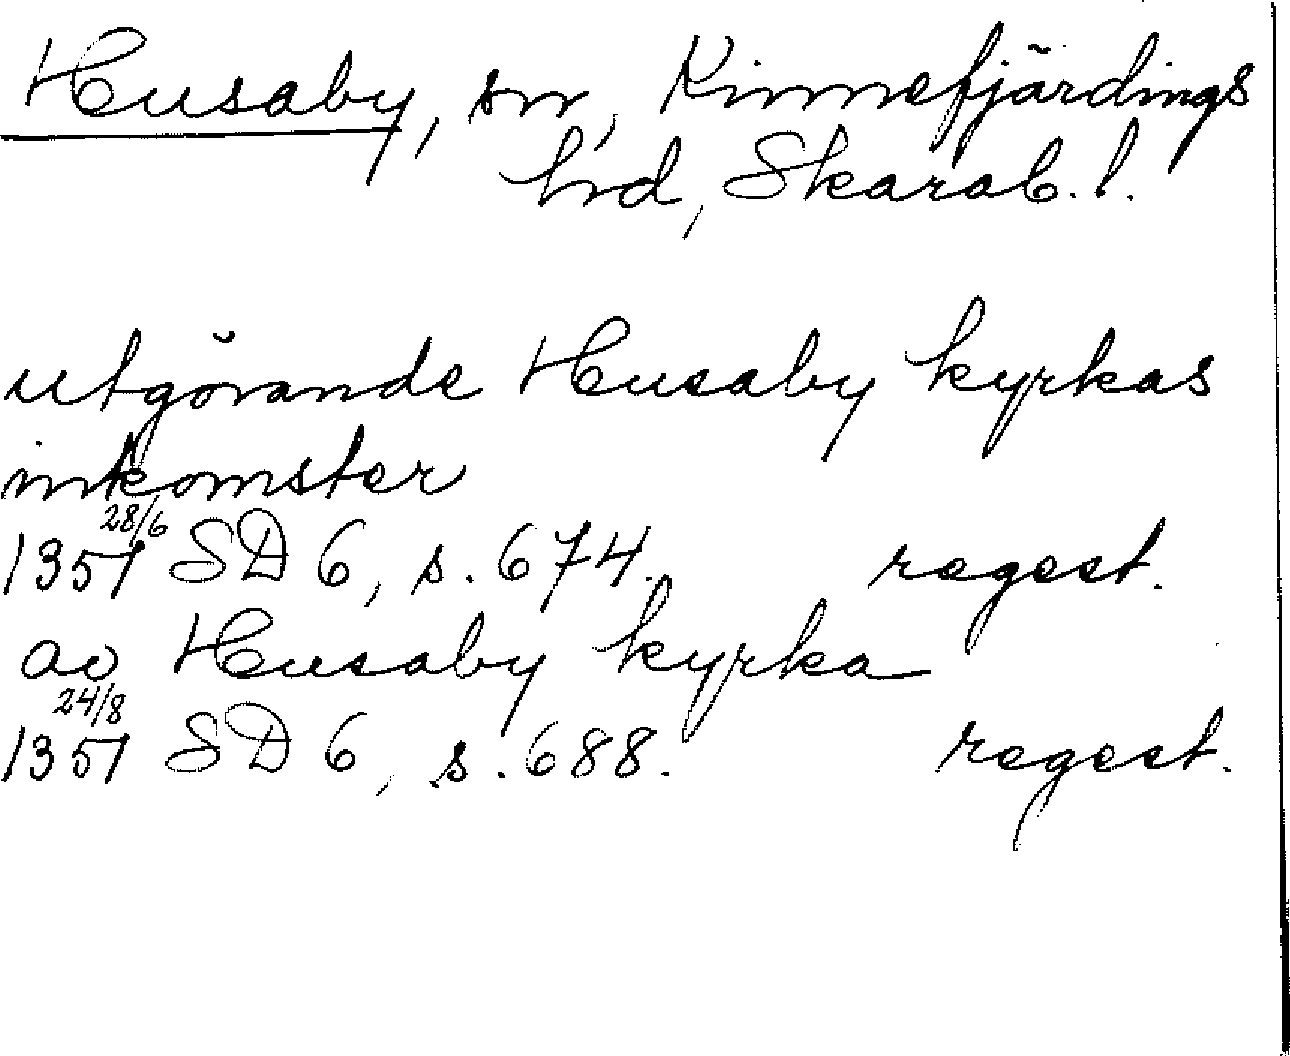 Husaby, sn, Kinnefjärdings
hd, Skarab. l.
utgörande Husaby kyrkas
inkomster
28/6
1357 SD 6, s. 674. regest.
av Husaby kyrka
24/8
1357 SD 6, s. 688. regest.